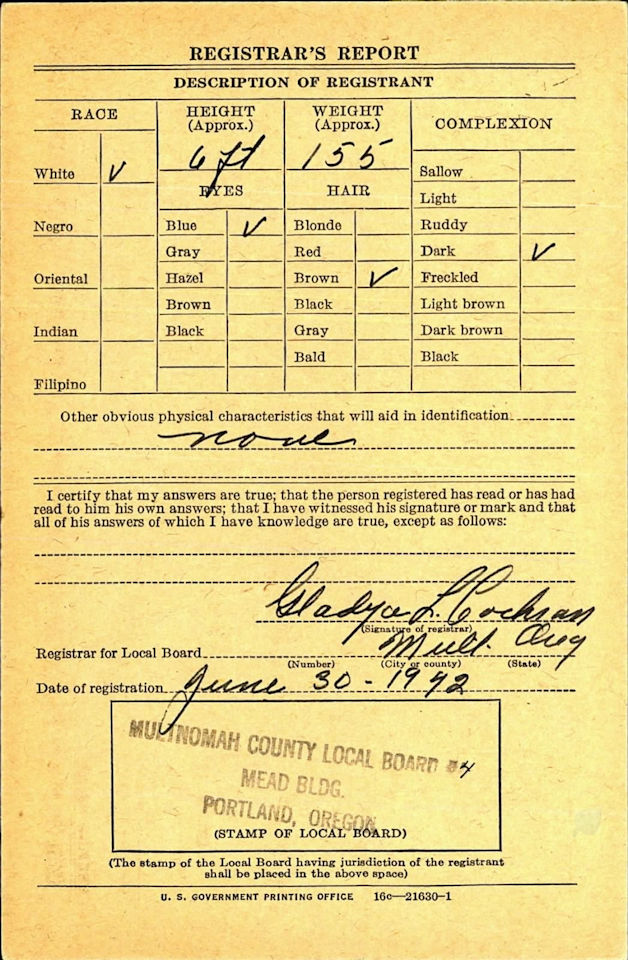 REGISTRAR'S REPORT
DESCRIPTION OF REGISTRANT
RACE
HEIGHT (Approx.)
WEIGHT (Approx.)
COMPLEXION
6 ft
155
White ✓
EYES
HAIR
Sallow
Light
Negro
Blue ✓
Blonde
Ruddy
Gray
Red
Dark ✓
Oriental
Hazel
Brown ✓
Freckled
Brown
Black
Light brown
Indian
Black
Gray
Dark brown
Bald
Black
Filipino
Other obvious physical characteristics that will aid in identification
none
I certify that my answers are true; that the person registered has read or has had
read to him his own answers; that I have witnessed his signature or mark and that
all of his answers of which I have knowledge are true, except as follows:
Gladys L. Cochran
(Signature of registrar)
Registrar for Local Board Mult. Oreg
(Number) (City or county) (State)
Date of registration June 30 - 1942
MULTNOMAH COUNTY LOCAL BOARD #4
MEAD BLDG.
PORTLAND, OREGON
(STAMP OF LOCAL BOARD)
(The stamp of the Local Board having jurisdiction of the registrant
shall be placed in the above space)
U. S. GOVERNMENT PRINTING OFFICE 16c—21630-1